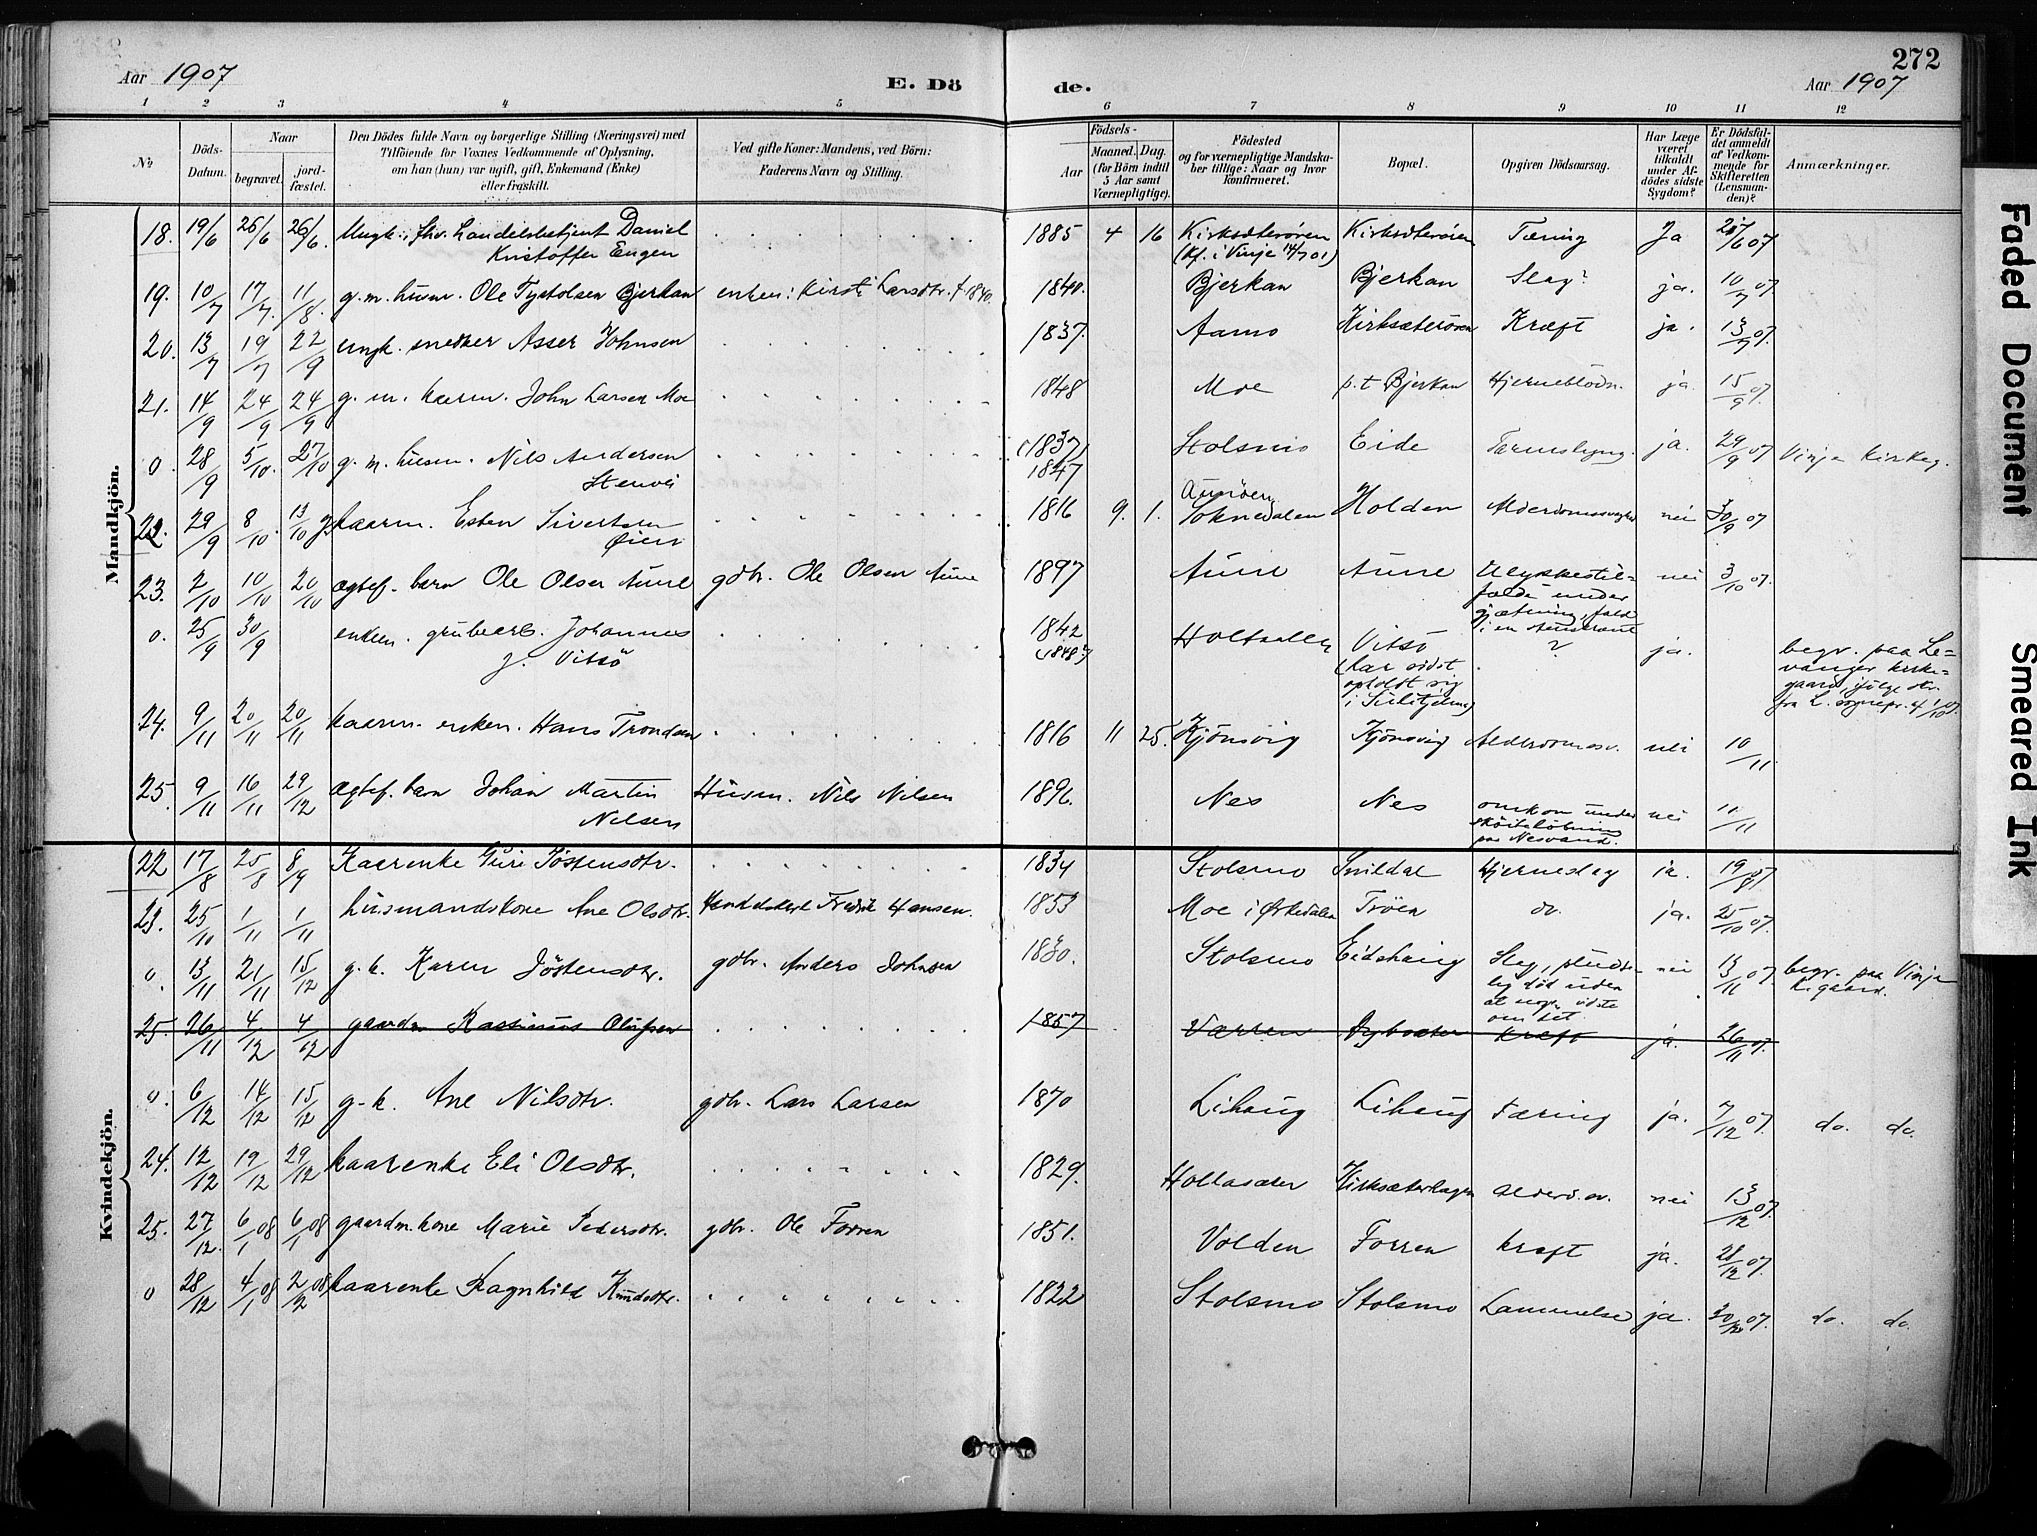 272
Aar 1907 E. Dö de. Aar 1907
1 2 3 4 5 6 7 8 9 10 11 12
No
Döds-Datum.
Naar
begravet.
jord-fæstet.
Den Dödes fulde Navn og borgerlige Stilling (Næringsvei) med
Tilföiende for Voxnes Vedkommende af Oplysning,
om han (hun) var ugift, gift, Enkemand (Enke)
eller fraskilt.
Ved gifte Koner: Mandens, ved Börn:
Faderens Navn og Stilling.
Födsels-
Aar
Maaned. Dag.
(for Börn indtil
5 Aar samt
Værnepligtige).
Födested
og for værnepligtige Mandska-
ber tillige: Naar og hvor
konfirmeret.
Bopæl.
Opgiven Dödsaarsag.
Har Læge
været
tilkaldt
under Af-
dödes sidste
Sygdom?
Er Dödsfal-
det anmeldt
af Vedkom-
mende for
Skifteretten
(Lensman-
den)?
Anmærkninger.
Mandkjön.
18. 19/6 26/6 26/6 Ungk., fhv. handelsbetjent Daniel 1885 4 16 Kirksæterøren Kirksæterøren Tæring Ja 21/6 07
Kristoffer Engen (kf. i Vinje 14/7 01)
19. 10/7 17/7 11/8 g.m. husm. Ole Bjerkan enken: Kirsti Larsdtr. f. 1840. 1840. Bjerkan Bjerkan Slag? ja. 10/7 07
20. 13/7 19/7 22/9 ungk. snedker Asser Johnsen 1837. Aamo Kirksæterøren Kræft ja. 13/7 07.
21. 14/9 24/9 24/9 g. m. kaarm. John Larsen Moe 1848 Moe p.t Bjerkan Hjerneblødn. ja. 15/9 07.
0. 28/9 5/10. 27/10 g. m. husm. Nils Andersen (1837) Stolsmo Eide ja. 29/9 07 Vinje kirkeg.
1847
22. 29/9 8/10. 13/10 kaarm. Esten Sivertsen 1816 9. 1. Soknedalen Holden nei 30/9 07
23. 2/10 10/10 20/10 ægtef. barn Ole Olsen Aune gdbr. Ole Olsen Aune 1897 Aune Aune Ulykkestil- nei 3/10 07.
fælde under
gjætning, fald
i en
0. 25/9 30/9 enkem. grubearb. Johannes 1842 Vitsö ? ja. begr. paa Le-
J. Vitsö (1848?) (har sidst vanger kirke-
opholdt sig gaard, ifölge
i Sulitjelma) fra L. sognepr. 4/10 07.
24. 9/11 20/11 20/11 kaarm. enkem. Hans Trondsen 1816 11 25. Kjönsvig Kjönsvig Alderdomssv. nei 10/11
25. 9/11 16/11 29/12 ægtef. barn Johan Martin Husm. Nils Nilsen 1896. Nes Nes omkom under nei 11/11
Nilsen sköiteløbning
paa Nesvand.
Kvindekjön.
22 17/8 25/8 8/9 Kaarenke Guri Jöstensdtr. 1834 Stolsmo Snildal Hjerneslag ja. 19/8 07
23. 25/10 1/11 1/11 husmandskone Ane Olsdtr. Fredrik Hansen. 1853 Moe i Ørkedalen Trøen do. ja. 25/10 07.
0. 13/11 21/11 15/12 g.k. Karen Jöstensdtr. gdbr. Anders Johnsen 1830. Stolsmo Eidshaug Slag, pluds- nei 13/11 07. begr. paa Vinje
lig död uden k. gaard.
at nogen vidste
om det.
25. 26/11 4/12 4/12 gaardm Rasmus Olufsen 1857 kræft ja. 26/11 07.
0. 6/12 14/12 15/12 g.k. Ane Nilsdtr. gdbr. Lars Larsen 1870 Lihaug Lihaug Tæring ja. 7/12 07. do. do.
24. 12/12 19/12 29/12 kaarenke Eli Olsdtr. 1829. Hollasæter Kirksæterhagen Alderd.sv. nei 13/12 07.
25. 27/12. 6/1 08 6/1 08 gaardm.kone Marie Pedersdtr. gdbr. Ole Forren 1851. Volden Forren kræft ja. 28/12 07.
0 28/12 4/1 08 2/2 08 kaarenke Ragnhild Knudsdtr. 1822 Stolsmo Stolsmo Lammelse ja. 30/12 07. do. do.
Faded Document
Smeared Ink